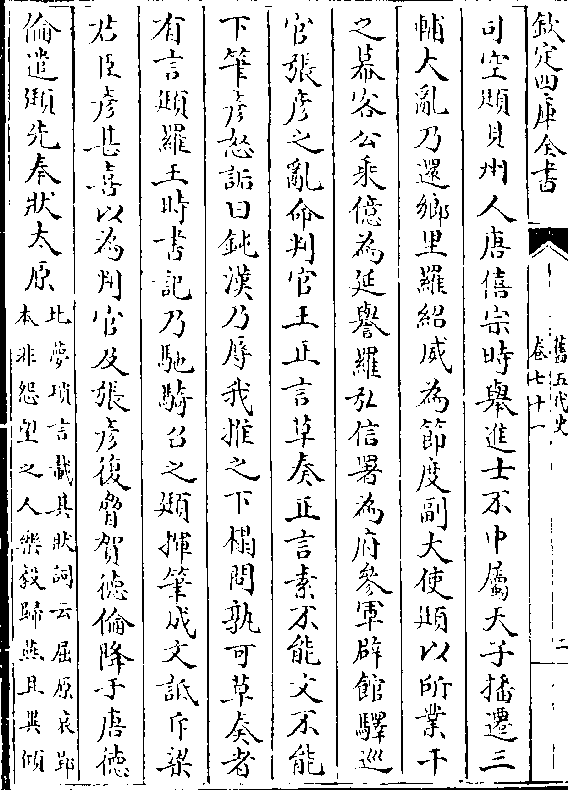 欽定四庫全書
舊五代史
卷七十一
二
司空頲貝州人唐僖宗時舉進士不中屬天子播遷三
輔大亂乃還鄉里羅紹威為節度副大使頲以所業干
之幕客公乘億為延譽羅弘信署為府參軍辟館驛巡
官張彥之亂命判官王正言草奏正言素不能文不能
下筆彥怒詬曰鈍漢乃辱我推之下榻問孰可草奏者
有言頲羅王時書記乃馳騎召之頲揮筆成文詆斥梁
君臣彥甚喜以為判官及張彥復脅賀德倫降于唐德
倫遣頲先奉狀太原
北夢瑣言載其狀詞云屈原哀郢
本非怨望之人樂毅歸燕且異傾